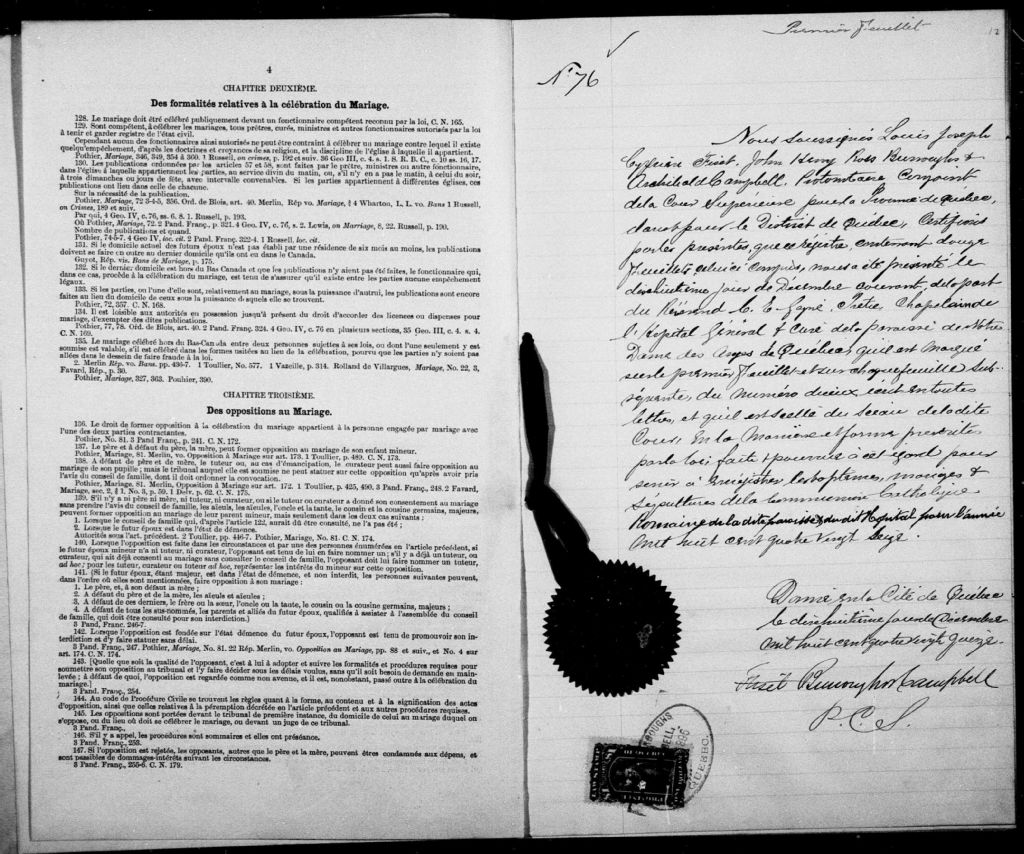 4
CHAPITRE DEUXIÈME.
Des formalités relatives à la célébration du Mariage.
128. Le mariage doit être célébré publiquement devant un fonctionnaire compétent reconnu par la loi, C. N. 165.
129. Sont compétent, à célébrer les mariages, tous prêtres, curés, ministres et autres fonctionnaires autorisés par la loi
à tenir et garder registre de l'état civil.
Cependant aucun des fonctionnaires ainsi autorisés ne peut être contraint à célébrer un mariage contre lequel il existe
quelqu'empêchement, d'après les doctrines et croyances de sa religion, et la discipline de l'église à laquelle il appartient.
Pothier, Mariage, 346, 349, 354 à 360. 1 Russell, on crimes, p. 192 et suiv. 36 Geo III, c. 4. s. 1. S. R. B. C., c. 10 ss 16, 17.
130. Les publications ordonnées par les articles 57 et 58, sont faites par le prêtre, ministre ou autre fonctionnaire,
dans l'église à laquelle appartiennent les parties, au service divin du matin, ou, s'il n'y en a pas le matin, à celui du soir,
à trois dimanches ou jours de fête, avec intervalle convenables. Si les parties appartiennent à différentes églises, ces
publications ont lieu dans celle de chacune.
Sur la nécessité de la publication.
Pothier, Mariage, 72 3-4-5, 356. Ord. de Blois, art. 40. Merlin, Rép vo. Mariage, § 4 Wharton, L, L. vo. Bans 1 Russell,
on Crimes, 189 et suiv.
Par qui, 4 Geo. IV, c. 76, ss. 6. 8. 1. Russell, p. 193.
Où Pothier, Mariage, 72. 2 Pand. Franç., p. 321. 4 Geo. IV, c. 76, s. 2. Lewis, on Marriage, 8, 22. Russell, p. 190.
Nombre de publications et quand.
Pothier, 74-5-7. 4 Geo IV, loc. cit. 2 Pand. Franç. 322-4. 1 Russell. loc. cit.
131. Si le domicile actuel des futurs époux n'est pas établi par une résidence de six mois au moins, les publications
doivent se faire en outre au dernier domicile qu'ils ont eu dans le Canada.
Guyot, Rép. vis. Bans de Mariage, p. 175.
132. Si le dernier domicile est hors du Bas Canada et que les publications n'y aient pas été faites, le fonctionnaire qui,
dans ce cas, procède à la célébration du mariage, est tenu de s'assurer qu'il existe entre les parties aucune empêchement
légaux.
133. Si les parties, ou l'une d'elle sont, relativement au mariage, sous la puissance d'autrui, les publications sont encore
faites au lieu du domicile de ceux sous la puissance desquels elle se trouvent.
Pothier, 72, 357. C. N. 168.
134. Il est loisible aux autorités en possession jusqu'à présent du droit d'accorder les licences ou dispenses pour
mariage, d'exempter des dites publications.
Pothier, 77, 78. Ord. de Blois, art. 40. 2 Pand. Franç. 324. 4 Geo IV, c. 76 en plusieurs sections, 35 Geo. III, c. 4. s. 4.
C. N. 169.
135. Le mariage célébré hors du Bas-Canada entre deux personnes sujettes à ses lois, ou dont l'une seulement y est
soumise est valable, s'il est célébré dans les formes usitées au lieu de la célébration, pourvu que les parties n'y soient pas
allées dans le dessein de faire fraude à la loi.
2. Merlin Rép. vo. Bans. pp. 436-7. 1 Toullier, No. 577. 1 Vazeille, p. 314. Rolland de Villargues, Mariage, No. 22, 3,
Favard, Rép., p. 30.
Pothier, Mariage, 327, 363. Pouhier, 390.
CHAPITRE TROISIÈME.
Des oppositions au Mariage.
136. Le droit de former opposition à la célébration du mariage appartient à la personne engagée par mariage avec
l'une des deux parties contractantes.
Pothier, No. 81. 3 Pand Franç., p. 241. C. N. 172.
137. Le père et à défaut du père, la mère, peut former opposition au mariage de son enfant mineur.
Pothier, Mariage, 81. Merlin, vo. Opposition à Mariage sur art. 173. 1 Toullier, p. 489. C. N. 173.
138. A défaut de père et de mère, le tuteur ou, au cas d'émancipation, le curateur peut aussi faire opposition au
mariage de son pupille; mais le tribunal auquel elle est soumise ne peut statuer sur cette opposition qu'après avoir pris
l'avis du conseil de famille, dont il doit ordonner la convocation.
Pothier, Mariage, 81. Merlin, Opposition à Mariage sur art. 172. 1 Toullier, p. 425, 490. 3 Pand. Franç., 248. 2 Favard,
Mariage, sec. 2, § 1. No. 3, p. 59. 1 Delv. p. 62. C. N. 175.
139. S'il n'y a ni père ni mère, ni tuteur, ni curateur, ou si le tuteur ou curateur a donné son consentement au mariage
sans prendre l'avis du conseil de famille, les aïeuls, les aïeules, l'oncle et la tante, le cousin et la cousine germains, majeurs,
peuvent former opposition au mariage de leur parent mineur, mais seulement dans les deux cas suivants :
1. Lorsque le conseil de famille qui, d'après l'article 122, aurait dû être consulté, ne l'a pas été ;
2. Lorsque le futur époux est dans l'état de démence.
Autorités sous l'art. précédent. 2 Toullier, pp. 446-7. Pothier, Mariage, No. 81. C. N. 174.
140. Lorsque l'opposition est faite dans les circonstances et par une des personnes énumérées en l'article précédent, si
le futur époux mineur n'a ni tuteur, ni curateur, l'opposant est tenu de lui en faire nommer un; s'il y a déjà un tuteur, ou
curateur, qui ait déjà consenti au mariage sans consulter le conseil de famille, l'opposant doit lui faire nommer un tuteur,
ad hoc: pour les tuteur, curateur ou tuteur ad hoc, représenter les intérêts du mineur sur cette opposition.
141. (Si le futur époux, étant majeur, est dans l'état de démence, et non interdit, les personnes suivantes peuvent,
dans l'ordre où elles sont mentionnées, faire opposition à son mariage :
1. Le père, et, à son défaut la mère ;
2. A défaut du père et de la mère, les aïeuls et aïeules ;
3. A défaut de ces derniers, le frère ou la sœur, l'oncle ou la tante, le cousin ou la cousine germains, majeurs ;
4. A défaut de tous les sus-nommés, les parents et alliés du futur époux, qualifiés à assister à l'assemblée du conseil
de famille, qui doit être consulté pour son interdiction.)
3 Pand, Franç. 246-7.
142. Lorsque l'opposition est fondée sur l'état démence du futur époux, l'opposant est tenu de promouvoir son in-
terdiction et d'y faire statuer sans délai.
3 Pand. Franç., 247. Pothier, Mariage, No. 81. 22 Rép. Merlin, vo. Opposition au Mariage, pp. 88 et suiv., et No. 4 sur
art. 174. C. N. 174.
143. [Quelle que soit la qualité de l'opposant, c'est à lui à adopter et suivre les formalités et procédures requises pour
soumettre son opposition au tribunal et l'y faire décider sous les délais voulus, sans qu'il soit besoin de demande en main-
levée ; à défaut de quoi, l'opposition est regardée comme non avenue, et il est, nonobstant, passé outre à la célébration du
mariage.]
3 Pand. Franç., 254.
144. Au code de Procédure Civile se trouvent les règles quant à la forme, au contenu et à la signification des actes
d'opposition, ainsi que celles relatives à la péremption décrétée en l'article précédent et aux autres procédures requises.
145. Les oppositions sont portées devant le tribunal de première instance, du domicile de celui au mariage duquel on
s'oppose, ou du lieu où doit se célébrer le mariage, ou devant un juge de ce tribunal.
3 Pand. Franç.,
146. S'il y a appel, les procédures sont sommaires et elles ont préséance.
3 Pand. Franç., 253.
147. Si l'opposition est rejetée, les opposants, autres que le père et la mère, peuvent être condamnés aux dépens, et
sont passibles de dommages-intérêts suivant les circonstances.
3 Pand. Franç., 255-6. C. N. 179.
Premier Feuillet
12
No 76
Nous soussignés Louis Joseph
Cyprien Fiset, John Henry Ross Burroughs &
Archibald Campbell, Protonotaire Conjoint
de la Cour Supérieure pour la Province de Québec,
dans et pour le District de Québec, Certifions
par les présentes, que ce registre, contenant douze
Feuillets, celui-ci compris, nous a été présenté le
dixhuitième jour de Décembre courant, de la part
du Révérend C. E. Gagné, Prêtre, Chapelain de
l'Hôpital Général & Curé de la paroisse de Notre
Dame des Anges de Québec, qu'il est marqué
sur le premier Feuillet et sur chaque feuillet sub-
séquents, du numéro d'iceux, écrit en toutes
lettres, et qu'il est scellé du sceau de la dite
Cour, en la manière et forme prescrites
par la loi, faite & pourvue à cet égard pour
servir à Enregistrer les baptêmes, mariages &
Sépultures de la Communion Catholique
Romaine de la dite paroisse & du dit Hôpital pour l'année
mil huit cent quatre vingt seize.
Donné en la Cité de Québec
le dixhuitième jour de Décembre
mil huit cent quatre vingt quinze
Fiset Burroughs Campbell
P. C. S.
QUEBEC.
LAW STAMP